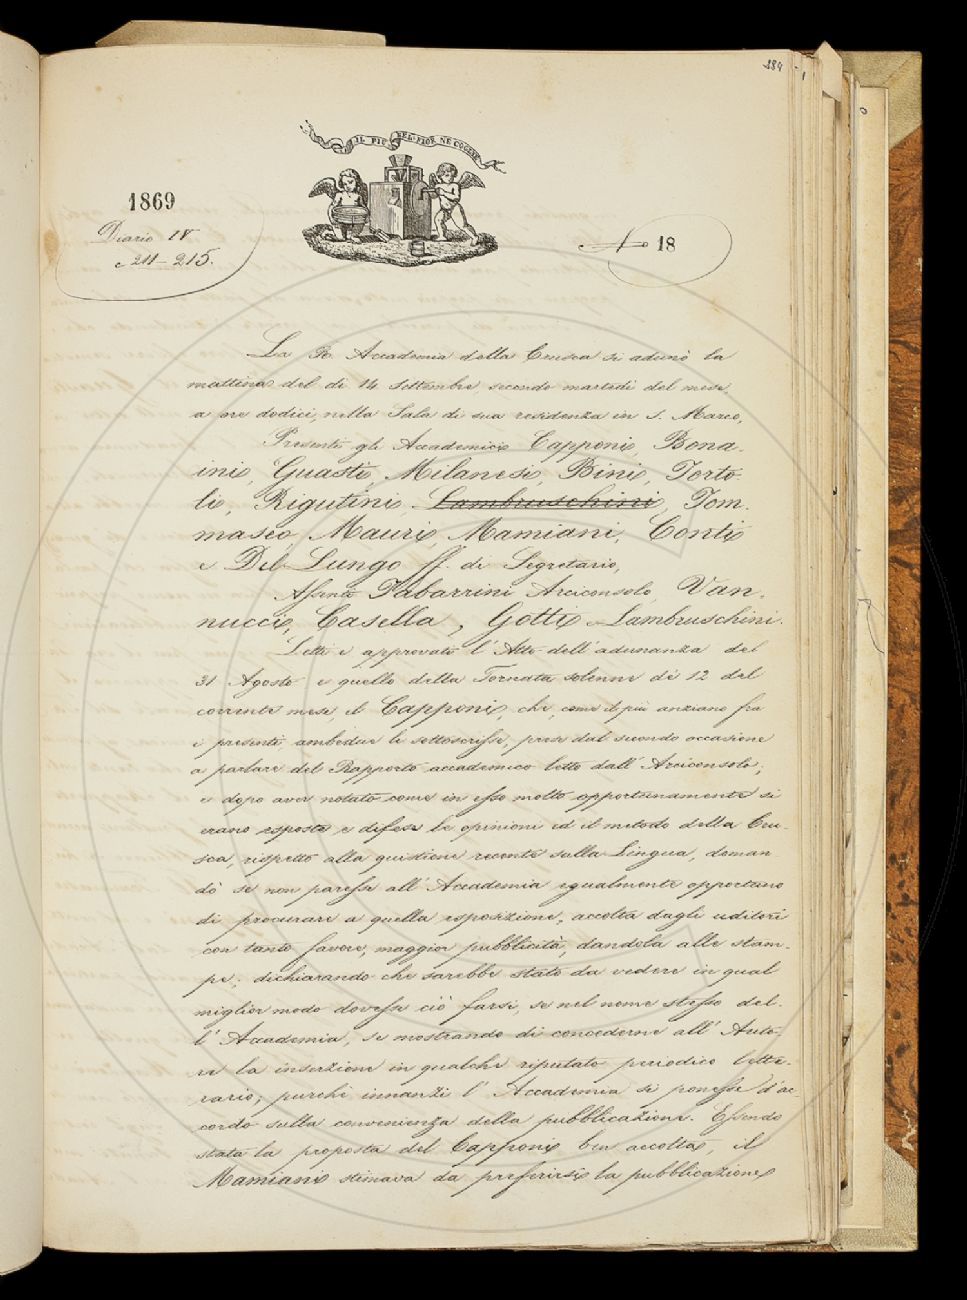 884
1
IL PIÙ BEL FIOR NE COGLIE
1869
Diario IV
c 211-215.
No 18
La R. Accademia della Crusca si adunò la
mattina del dì 14 Settembre, secondo martedì del mese,
a ore dodici, nella Sala di sua residenza in S. Marco,
Presenti gli Accademici Capponi, Bona-
ini, Guasti, Milanesi, Bini, Torto-
li, Rigutini Lambruschini, Tom-
maseo, Mauri, Mamiani, Conti
e Del Lungo ff. di Segretario,
Assente Tabarrini Arciconsolo, Van-
nucci, Casella, Gotti e Lambruschini.
Letti e approvati l'Atto dell'adunanza del
31 Agosto e quello della Tornata solenne dè 12 del
corrente mese, il Capponi, che, come il più anziano fra
i presenti, ambedue li sottoscrisse, prese dal secondo occasione
a parlare del Rapporto accademico letto dall'Arciconsolo;
e dopo aver notato come in esso molto opportunamente si
erano esposte e difese le opinioni ed il metodo della Cru-
sca, rispetto alla quistione recente sulla Lingua, doman-
dò se non paresse all'Accademia egualmente opportuno
di procurare a quella esposizione, accolta dagli uditori
con tanto favore, maggior pubblicità, dandola alle stam-
pe; dichiarando che sarebbe stato da vedere in qual
miglior modo dovesse ciò farsi, se nel nome stesso del-
l'Accademia, se mostrando di concederne all'Auto-
re la inserzione in qualche riputato periodico lette-
rario; purchè innanzi l'Accademia si ponesse d'ac-
cordo sulla convenienza della pubblicazione. Essendo
stata la proposta del Capponi ben accolta, il
Mamiani stimava da preferirsi la pubblicazione